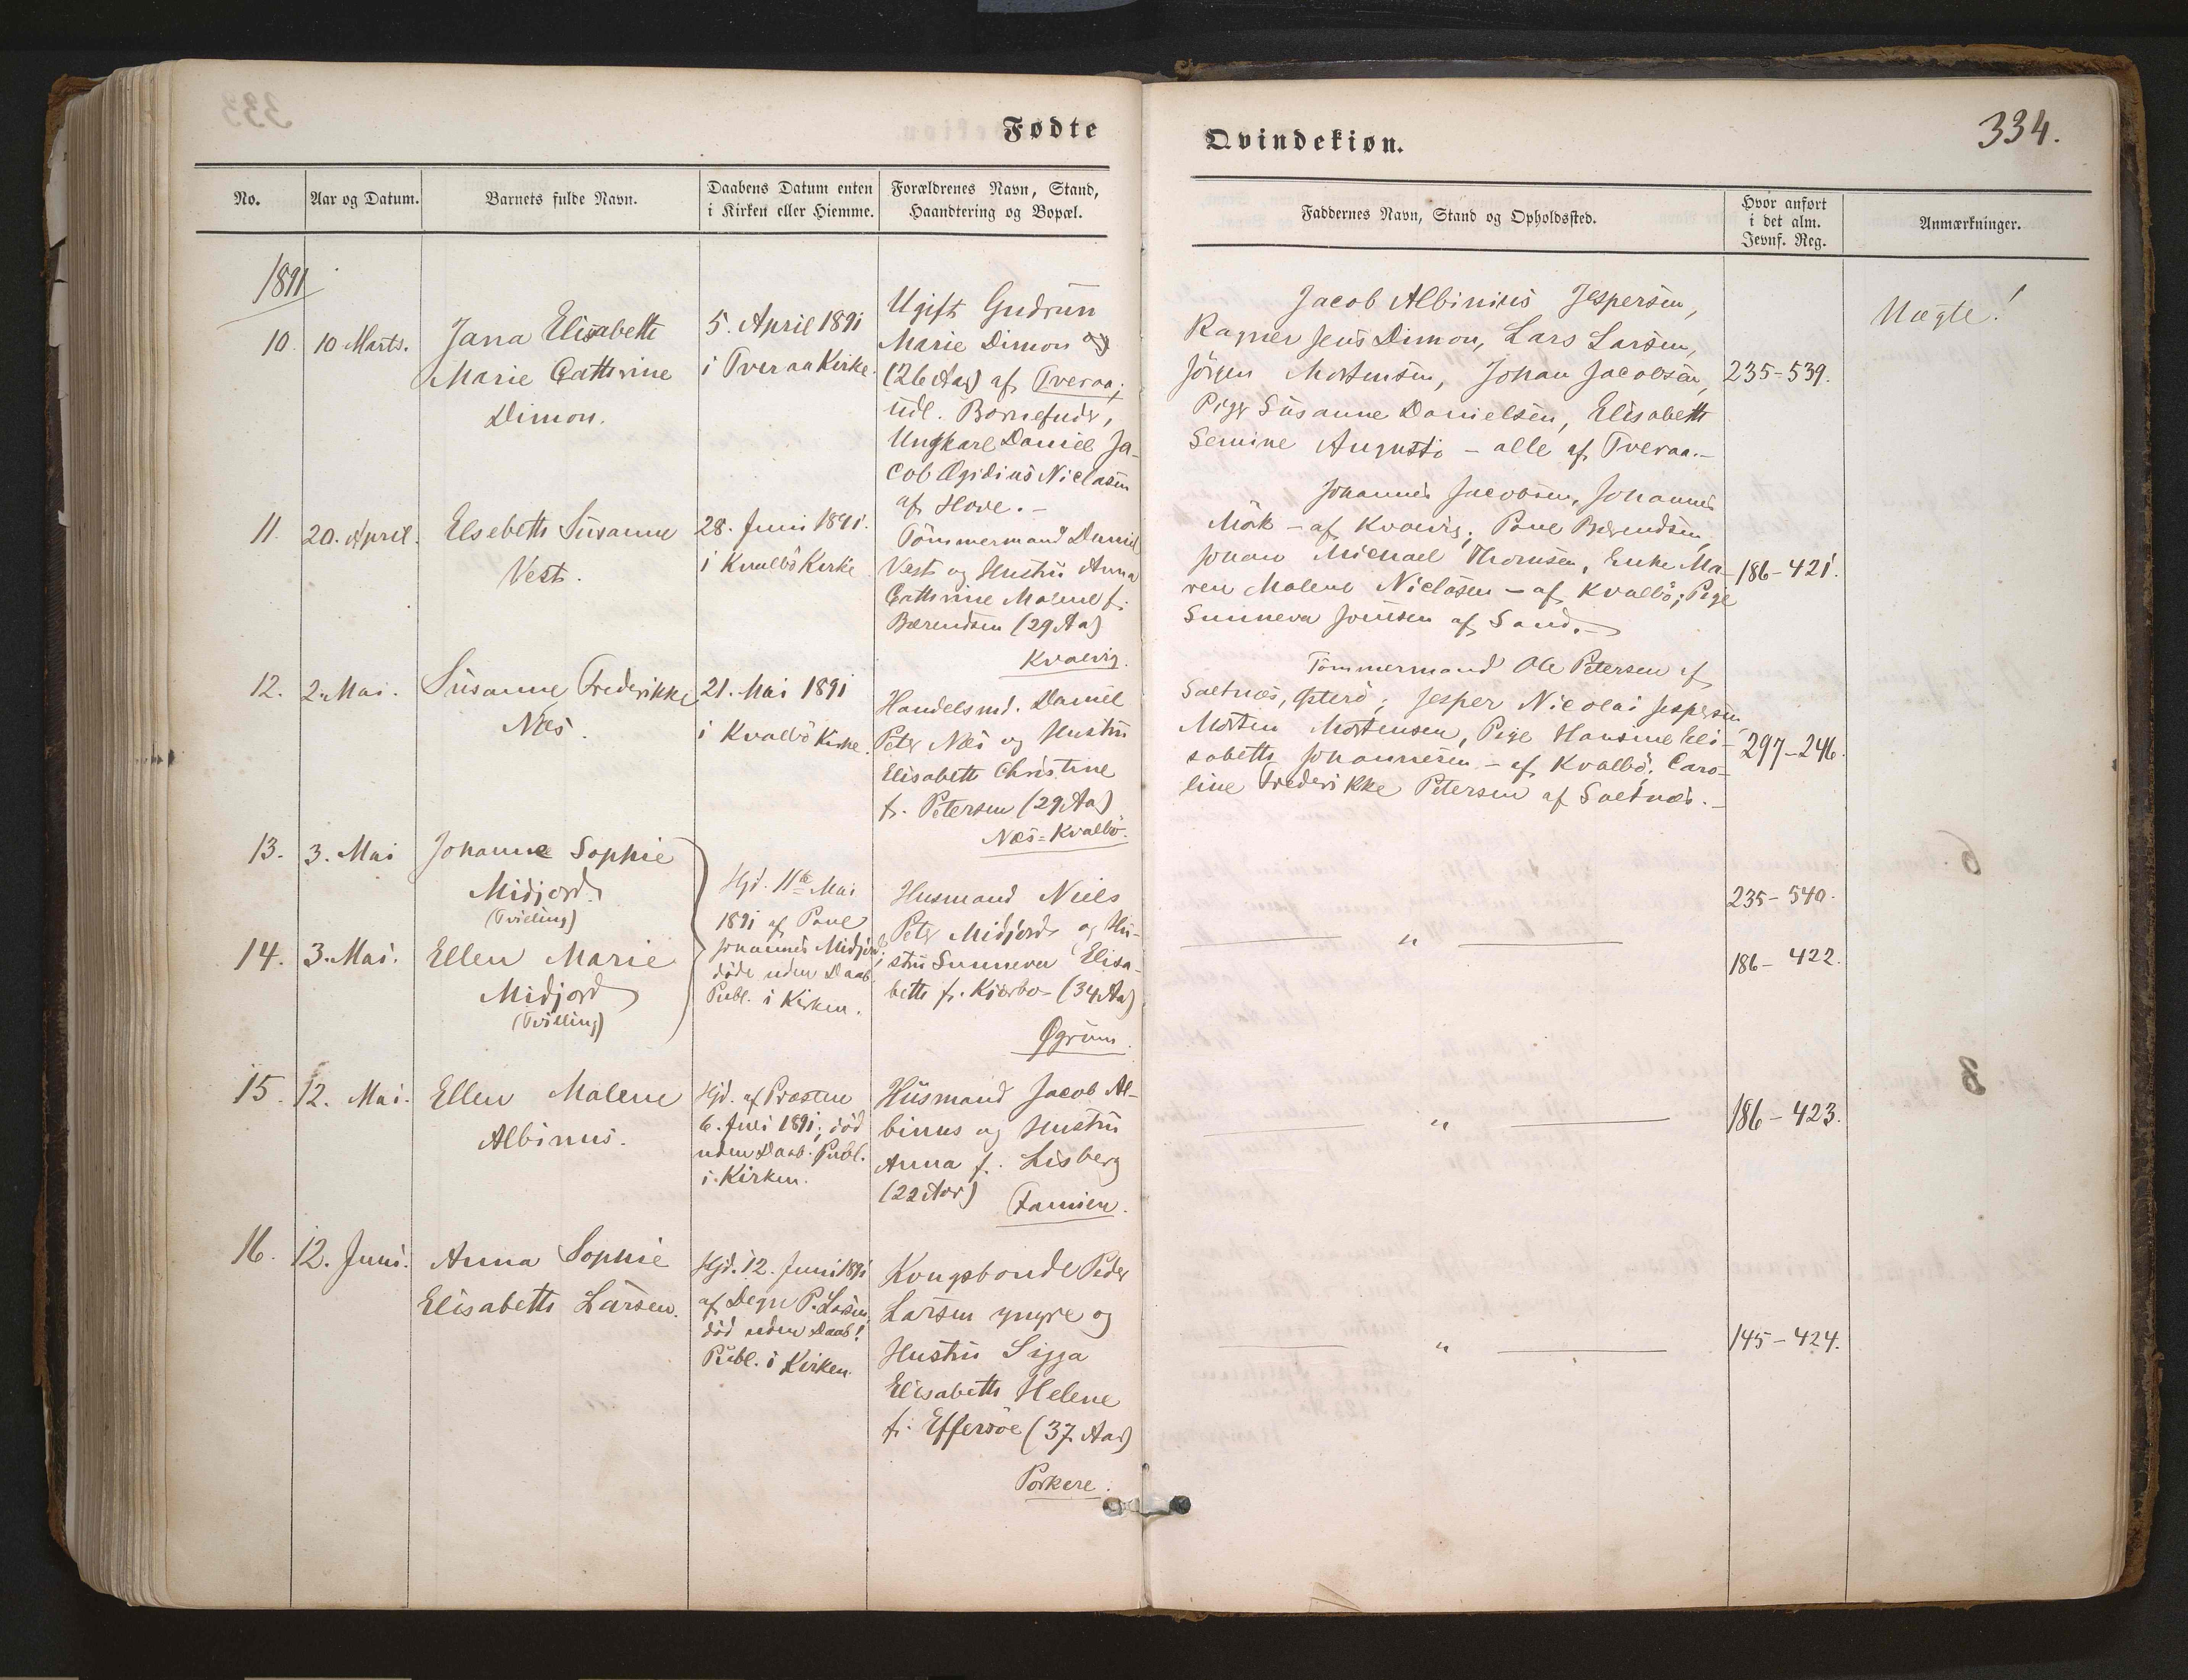 Fødte
Qvindekiøn.
334.
No.
Aar og Datum.
Barnets fulde Navn.
Daabens Datum enten
i Kirken eller Hiemme.
Forældrenes Navn, Stand,
Haandtering og Bopæl.
Faddernes Navn, Stand og Opholdssted.
Hvor anført
i det alm.
Jevnf. Reg.
Anmærkninger.
1891
10.
10 Marts.
Jana Elisabeth
Marie Cathrine
Dimon.
5. April 1891
i Tveraa Kirke.
Ugift Gudrun
Marie Dimon og
(26 Aar) af Tveraa;
udl. Barnefader,
Ungkarl Daniel Ja-
cob Ægidius Niclasen
af Hove. -
Jacob Albinius Jespersen,
Ragner Jens Dimon, Lars Larsen,
Jörgen Mortensen, Johan Jacobsen,
Pige Susanne Danielsen, Elisabeth
Semine Augusta - alle af Tveraa. -
235-539.
Uægte!
11.
20. April.
Elsebeth Susanne
Vest.
28. Juni 1891.
i Kvalbö Kirke
Tömmermand Daniel
Vest og Hustru Anna
Cathrine Malene f.
Bærendsen (29 Aa)
Kvalvig.
Johannes Jacobsen, Johannes
Mörk - af Kvalvig; Poul Bærendsen,
Johan Michael Thomsen, Enke Ma-
ren Malene Niclasen - af Kvalbö; Pige
Sunneva Joensen af Sand. -
186-421.
12.
2. Mai.
Susanne Frederikke
Næs.
21. Mai 1891
i Kvalbö Kirke.
Handelsmd. Daniel
Peter Næs og Hustru
Elisabeth Christine
f. Petersen (29 Aa)
Næs=Kvalbö.
Tömmermand Ole Petersen af
Saltnæs, Österö; Jesper Nicolai Jespersen,
Morten Mortensen, Pige Hansine Eli-
sabeth Johannesen - af Kvalbö; Caro-
line Frederikke Petersen af Saltnæs. -
297-246.
13.
3. Mai
Johanne Sophie
Midjord.
(Tvilling)
Hjd. 11te Mai
1891 af Poul
Johannes Midjord;
döde uden Daab.
Publ. i Kirken.
Husmand Niels
Peter Midjord og Hu-
stru Sunneva Elisa-
beth f. Kjærbo - (34 Aa)
Øgrum.
235-540.
14.
3. Mai.
Ellen Marie
Midjord
(Tvilling)
"
186-422.
15.
12. Mai.
Ellen Malene
Albinus.
Hjd. af Præsten
6. Juli 1891; död
uden Daab. Publ.
i Kirken.
Husmand Jacob Al-
binus og Hustru
Anna f. Lisberg
(22 Aar)
Famien.
"
186-423.
16.
12. Juni.
Anna Sophie
Elisabeth Larsen.
Hjd. 12. Juni 1891
af Degn P. Larsen,
död uden Daab!
Publ. i Kirken.
Kongsbonde Peder
Larsen yngre og
Hustru Sigga
Elisabeth Helene
f. Effersöe (37 Aar)
Porkere.
"
145-424.